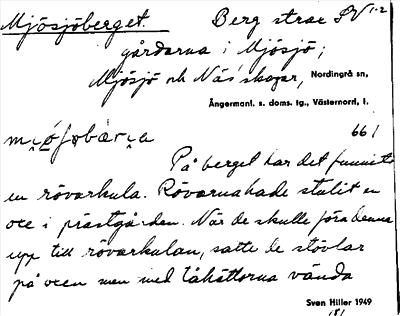 Mjösjöberget. Berg strax SV 1-2
gårdarna i Mjösjö;
Mjösjö och Näs' skogar, Nordingrå sn,
Ångermanl. s. doms. tg., Västernorrl. l.
661
På berget har det funnits
en rövarkula. Rövarna hade stulit en
oxe i prästgården. När de skulle föra denna
upp till rövarkulan, satte de stövlar
på oxen men med tåhättorna vända
Sven Hiller 1949
181